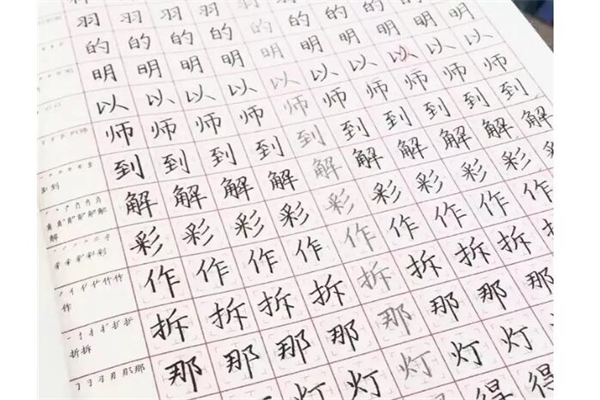 羽 羽 羽 羽
的 的 的 的 的 的 的 的
明 明 明 明 明 明 明 明 明 明
以 以 以 以 以 以 以 以 以 以
师 师 师 师 师 师 师 师 师 师 师
到 到 到 到 到 到 到 到 到 到
解 解 解 解 解 解 解 解 解 解
彩 彩 彩 彩 彩 彩 彩 彩 彩 彩
作 作 作 作 作 作 作 作 作
拆 拆 拆 拆 拆 拆 拆 拆 拆
那 那 那 那 那 那 那 那
灯 灯 灯 灯 灯
得 得 得